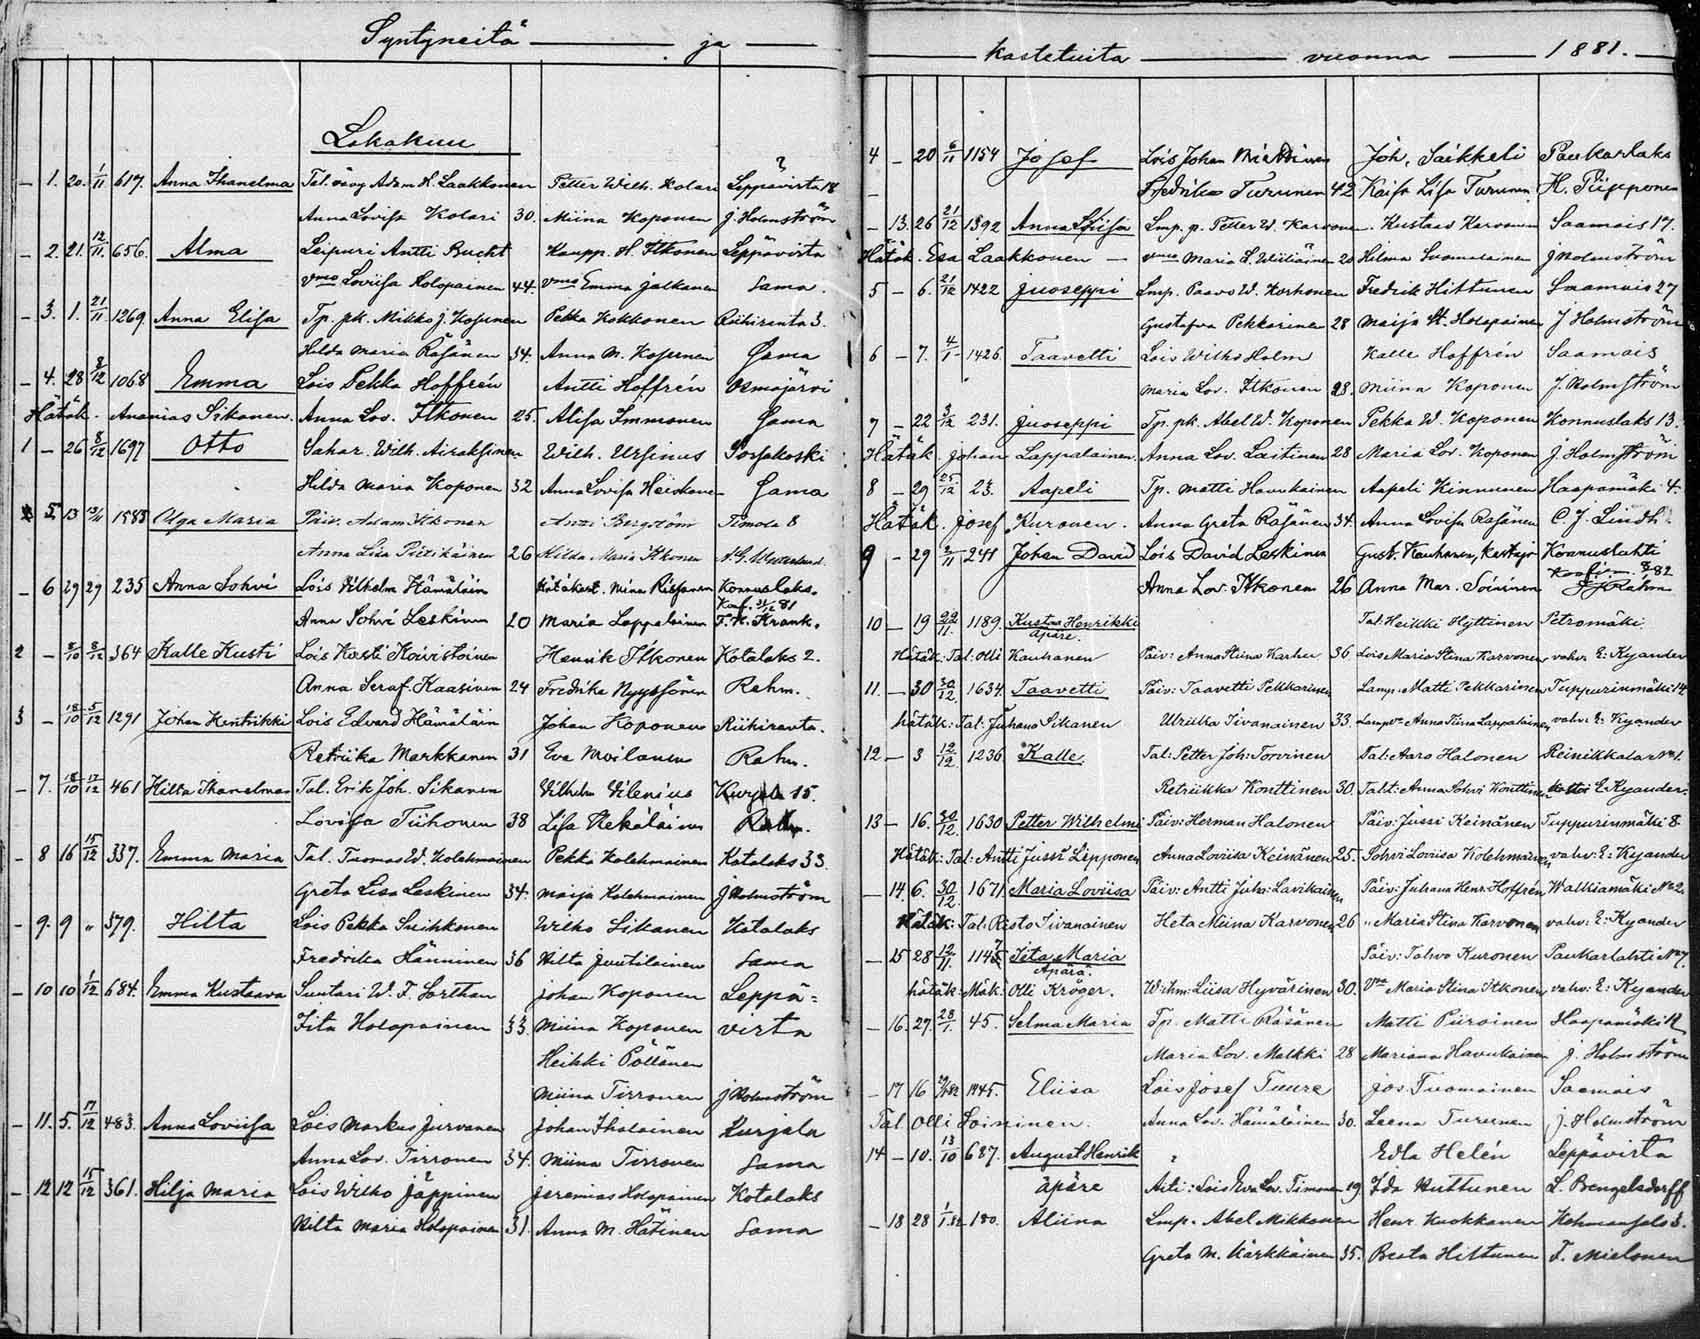 Syntyneitä ja
Lokakuu
– 1. 20. 1/11 617. Anna Ihanelma Tal. väng Adam H. Laakkonen Petter Wilh. Kolari Leppävirta 18
Anna Lovisa Kolari 30. Miina Koponen J. Holmström
– 2. 21. 12/11 656. Alma Leipuri Antti Bucht Kaupp. H. Itkonen Leppävirta
vmo Loviisa Holopainen 44. vmo Emma Jalkanen Sama.
– 3. 1. 21/11 1269 Anna Elisa Tp. pk. Mikko J. Kosunen Pekka Kokkonen Riikiranta 3.
Hilda Maria Räsänen 34. Anna M. Kosunen Sama
– 4. 28 8/12 1068 Emma Lois Pekka Hoffrén Antti Hoffrén Osmajärvi
Hätäk. Ananias Sikanen. Anna Lov. Itkonen 25. Alisa Immonen Sama
1 – 26 8/12 1697 Otto Sahar. Wilh. Airaksinen Wilh. Ursinus Sorsakoski
Hilda Maria Koponen 32 Anna Lovisa Heiskanen Sama
5. 13 13/11 1583 Olga Maria Päiv. Adam Itkonen Antti Bergström Timola 8
Anna Liisa Pietikäinen 26 Hilda Maria Itkonen
– 6 29 29 235 Anna Sohvi Lois Vilhelm Hämäläin Hätäkast. Mina Rissanen Konnuslaks.
Konf. 31/12 81
Anna Sohvi Leskinen 20 Maria Lappalainen F. W. Krank.
2 – 8/10 8/12 364 Kalle Kusti Lois Kusti Koivistoinen Henrik Itkonen Kotalaks 2.
Anna Seraf. Kaasinen 24 Fredika Nyyssönen Rahm.
3 – 18/10 5/12 1291 Johan Henrikki Lois Edvard Hämäläin Johan Koponen Riikiranta.
Retriika Markkanen 31 Eva Moilanen Rahm.
– 7. 18/10 17/12 461 Hilta Ihanelma Tal. Erik Joh. Sikanen Vilhelm Vilenius Kurjala 15.
Lovisa Tiihonen 38 Lisa Rekäläinen Rahm.
– 8 16 15/12 337. Emma Maria Tal. Tuomas W. Kolehmainen Pekka Kolehmainen Kotalaks 33.
Greta Lisa Leskinen 34. Maija Kolehmainen J Holmström
– 9. 9 " 579. Hilta Lois Pekka Suihkonen Wilho Sikanen Kotalaks
Fredrika Hänninen 36 Hilta Juutilainen Sama
– 10 10 1/12 684. Emma Kustaava Suutari W. F. Sorthan Johan Koponen Leppä=
Iita Holopainen 33. Miina Koponen virta
Heikki Pöllänen
Miina Tirronen J Holmström
– 11. 5. 17/12 483. Anna Loviisa Lois Markus Jurvanen Johan Ihalainen Kurjala
Anna Lov. Tirronen 34. Miina Tirronen Sama
– 12 12 15/12 361. Hilja Maria Lois Wilho Jäppinen Jeremias Holopainen Kotalaks
Hilta Maria Holopainen 31. Anna M. Hätinen Sama
kastetuita vuonna 1881.
4 – 20 6/11 1154 Josef Lois Johan Miettinen Joh. Saikkeli Paukarlaks
Fredrika Turunen 42 Kaisa Lisa Turunen H. Piipponen
– 13. 26 21/12 1392 Anna Loisa Lmp. p. Petter W. Karvonen. Kustaas Karvonen Saamais 17.
Hätäk. Esa Laakkonen – vmo Maria L. Wiiliäinen 20 Hilma Suomalainen J Holmström
5 – 6. 21/12 1422 Juoseppi Lmp. Paavo W. Korhonen Fredrik Hittunen Saamais 27
Gustafva Pekkarinen 28 Maija St. Holopainen J Holmström
6 – 7. 4/1 1426. Taavetti Lois Wilho Holm Kalle Hoffrén Saamais
Maria Lov. Itkonen 28. Miina Koponen J. Holmström
7 – 22 3/12 231. Juoseppi Tp. pk. Abel W. Koponen Pekka W. Koponen Konnuslaks 13.
Hätäk. Johan Lappalainen. Anna Lov. Laitinen 28 Maria Lov. Koponen J. Holmström
8 – 29 25/12 23. Aapeli Tp. Matti Havukainen Aapeli Kinnunen Haapamäki 4.
Hätäk. Josef Kuronen. Anna Greta Räsänen 34. Anna Lovisa Räsänen C. J. Lindh
9 – 29 2/11 241 Johan David Lois David Leskinen Gust. Kauhanen, Konnuslahti
Konfirm. 8/1 82
Anna Lov. Itkonen 26 Anna Mar. Soininen Rahm
10 – 19 29/11. 1189. Kustas Henrikki Tal: Heikki Hyttinen Petromäki.
äpäre.
Hätäk: Tal. Olli Kauhanen Päiv: Anna Stiina Karhu 36 Lois Maria Stina Karvonen vahv. E: Kyander
11. – 30 30/12. 1634. Taavetti Päiv: Taavetti Pekkarinen Lamp. Matti Pekkarinen Tuppurinmäki 14
hätäk: Tal: Juhana Sikanen Ulriikka Iivanainen 33. Lampvo Anna Tiina Lappalainen vahv: E: Kyander
12 – 3 12/12. 1236 Kalle Tal: Petter Joh: Torvinen Tal: Aaro Halonen Reinikkala No 1.
Retriikka Konttinen 30. Talt: Anna Sohvi Konttinen E: Kyander.
13 – 16. 30/12. 1630 Petter Wilhelmi Päiv: Herman Halonen Päiv: Jussi Keinänen Tuppurinmäki 8.
Hätäk: Tal: Antti Jussi Lipponen Anna Loviisa Keinänen 25. Sohvi Loviisa Kolehmainen vahv: E: Kyander
– 14. 6. 30/12. 1671. Maria Loviisa Päiv: Antti Juho: Lavikainen Päiv: Juhana Henr: Hoffrén Walkiamäki No 2.
Hätäk: Tal: Risto Iivanainen Heta Miina Karvonen 26 " Maria Stina Karvonen vahv: E: Kyander
– 15 28 12/11. 1147 Iita Maria Päiv: Tahvo Kuronen Paukarlahti No 7.
Äpärä.
hätäk: Mäk: Olli Kröger. W:ihm: Liisa Hyvärinen 30. Vmo Maria Stina Itkonen vahv: E: Kyander
– 16. 27. 28/1. 45. Selma Maria Tp. Matti Räsänen Matti Piiroinen Haapamäki 12
Maria Lov. Malkki 28 Mariana Havukainen J. Holmström
– 17 16 1945. Eliisa Lois Josef Tuure Jos. Tuomainen Saamais
Tal Olli Soininen. Anna Lov. Hämäläinen 30. Leena Turunen J. Holmström
14 – 10. 13/10 687. August Henrik Edla Helén Leppävirta
äpäre Äiti: Lois Eva Lov. Timonen 19 Ida Huttunen L. Bengelsdorff
– 18 28 1/1.82. 180. Aliina Lmp. Abel Mikkonen Henr. Kuokkanen 3.
Greta M. Kärkkäinen 35. Beeta Hittunen F. Mielonen